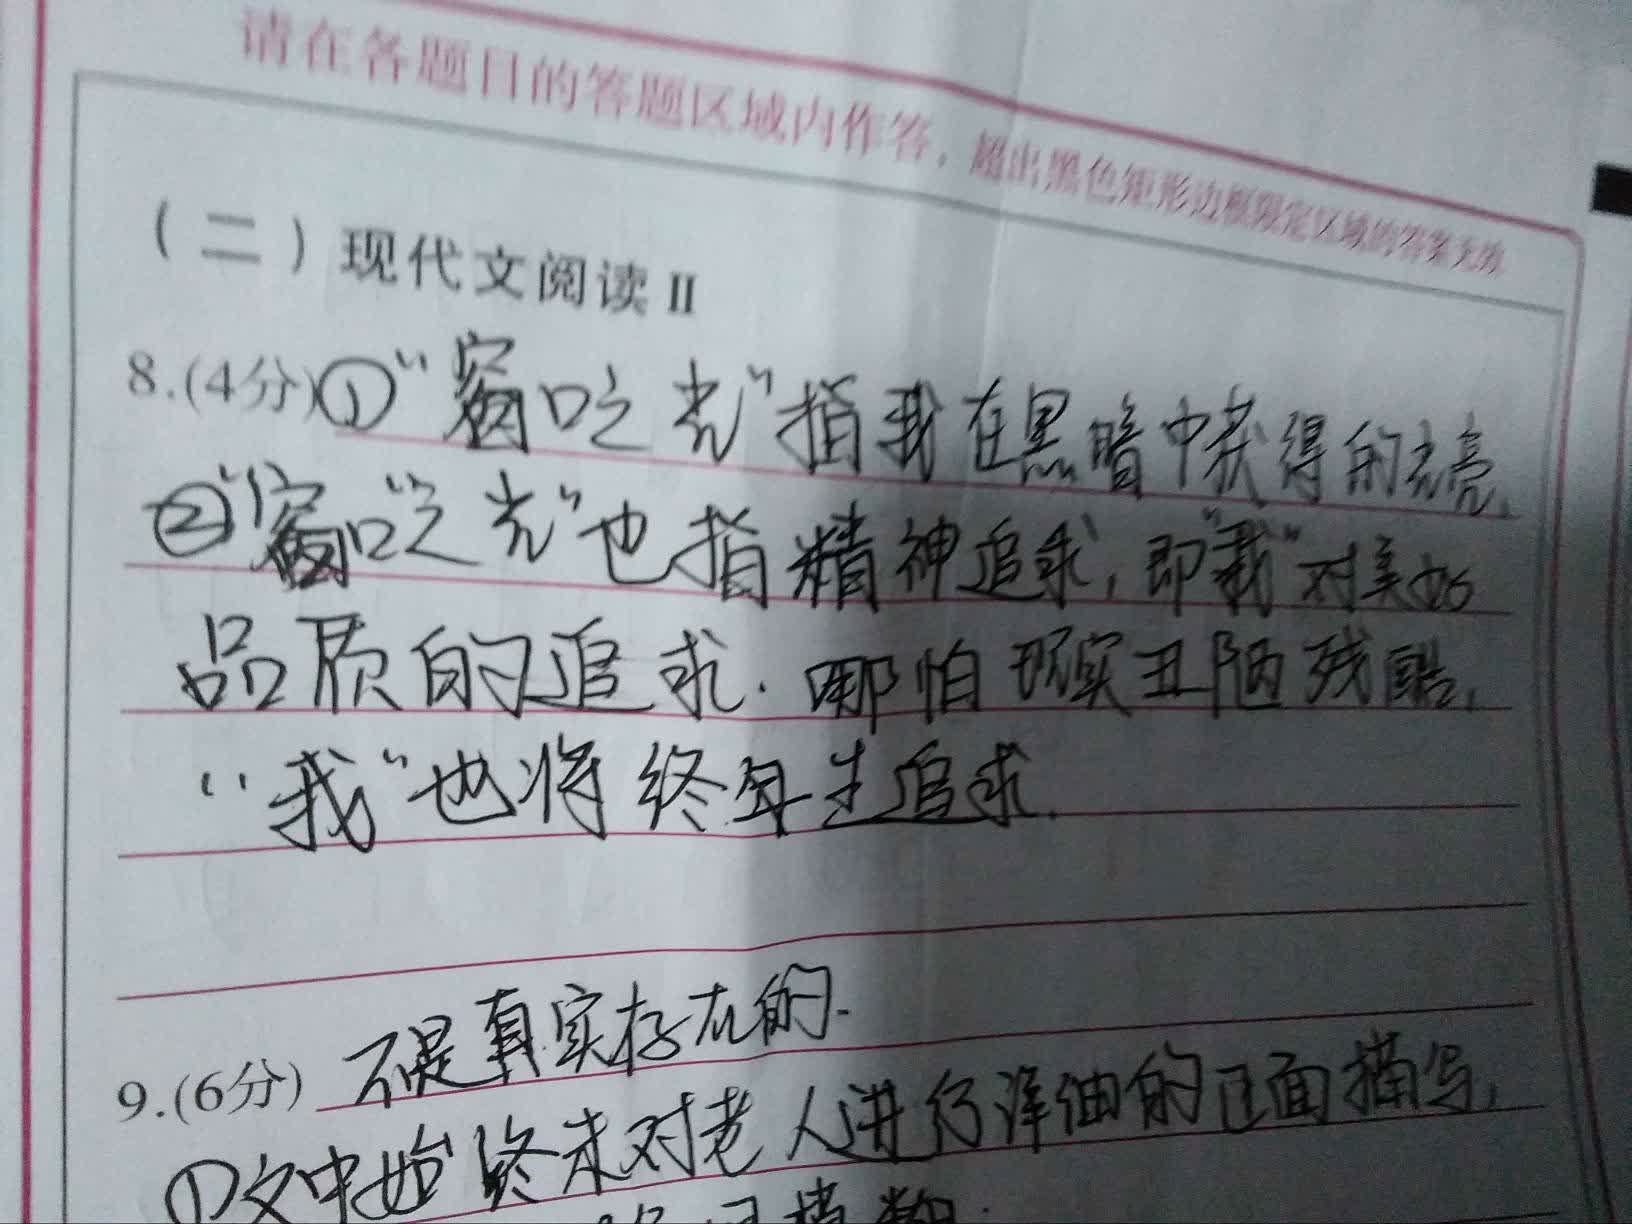 请在各题目的答题区域内作答，超出黑色矩形边框限定区域的答案无效
（二）现代文阅读 II
8.(4分)①“窗口之光”指我在黑暗中获得的光亮，
②“窗口之光”也指精神追求，即“我”对美好
品质的追求．哪怕现实丑陋残酷，
“我”也将终身追求．
9.(6分) 不是真实存在的．
①文中始终未对老人进行详细的正面描写，